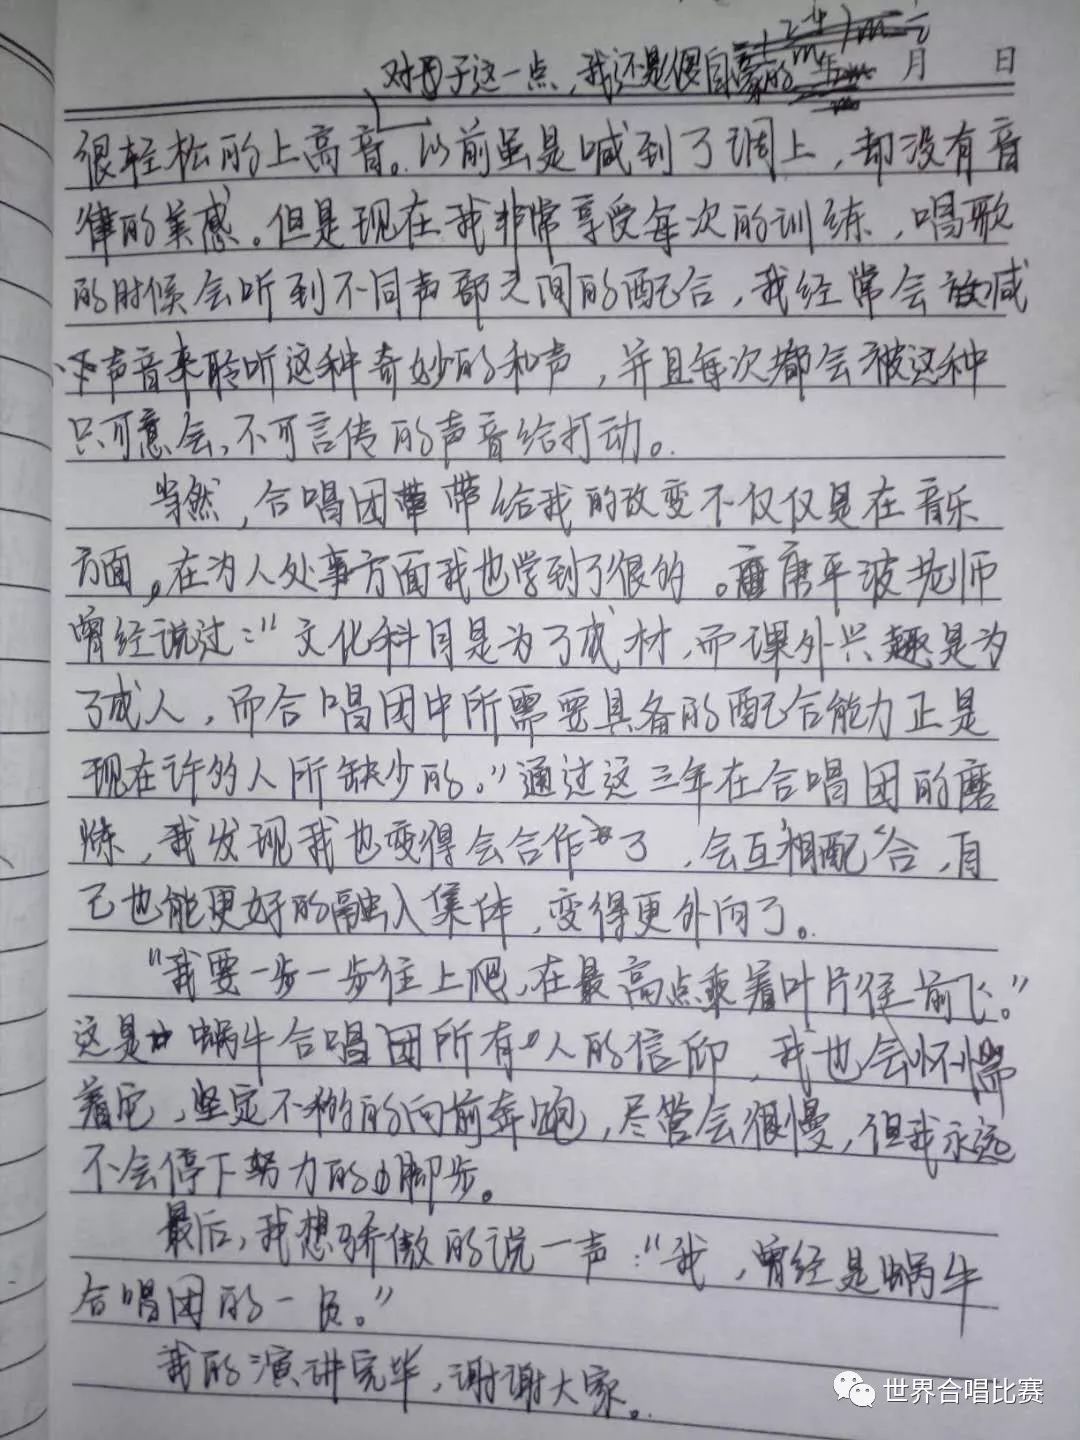 对于这一点，我还是很自豪的 年 月 日
很轻松的上高音。以前虽是喊到了调上，却没有音
律的美感。但是现在我非常享受每次的训练，唱歌
的时候会听到不同声部之间的配合，我经常会放减
下声音来聆听这种奇妙的和声，并且每次都会被这种
只可意会，不可言传的声音给打动。
当然，合唱团带给我的改变不仅仅是在音乐
方面。在为人处事方面我也学到了很的。唐平波老师
曾经说过："文化科目是为了成材，而课外兴趣是为
了成人，而合唱团中所需要具备的配合能力正是
现在许的人所缺少的。"通过这三年在合唱团的磨
炼，我发现我也变得会合作了，会互相配合，自
己也能更好的融入集体，变得更外向了。
"我要一步一步往上爬，在最高点乘着叶片往前飞。"
这是蜗牛合唱团所有人的信仰，我也会怀揣
着它，坚定不移的向前奔跑，尽管会很慢，但我永远
不会停下努力的脚步。
最后，我想骄傲的说一声："我，曾经是蜗牛
合唱团的一员。"
我的演讲完毕，谢谢大家。
世界合唱比赛